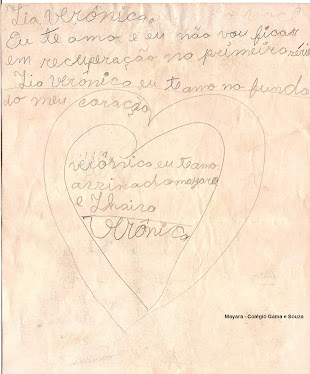 Tia, verônica.
Eu te amo e eu não vou ficar
em recuperação na primeira série
Tia verônica eu te amo no fundo
do meu coração
verônica eu te amo
assinado mayara
e Thaiza
Verônica
Mayara - Colégio Gama e Souza